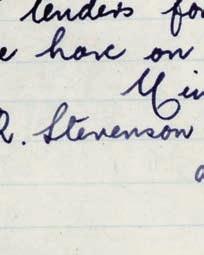 tenders for
e have on
Min
R. Stevenson
a